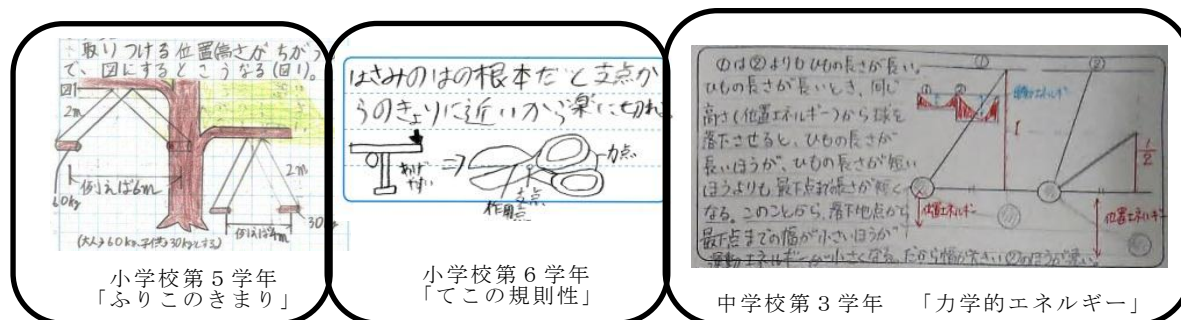 取りつける位置(高さ)がちがう
で、図にするとこうなる(図1)。
図1
2m
2m
例えば6m
例えば4m
60kg
30kg
(大人を60kg、子供を30kgとする)
小学校第5学年
「ふりこのきまり」
はさみのはの根本だと支点か
らのきょりに近いから楽に切れ
力点
支点
作用点
小学校第6学年
「てこの規則性」
①は②よりもひもの長さが長い。
ひもの長さが長いとき、同じ
高さ(位置エネルギー)から球を
落下させると、ひもの長さが
長いほうが、ひもの長さが短い
ほうよりも、最下点まで長さが短く
なる。このことから、落下地点から
最下点までの幅が小さいほうが
運動エネルギーが小さくなる。だから幅が大きい②のほうが速い。
①
②
①
②
運動エネルギー
1
1/2
位置エネルギー
位置エネルギー
中学校第3学年 「力学的エネルギー」